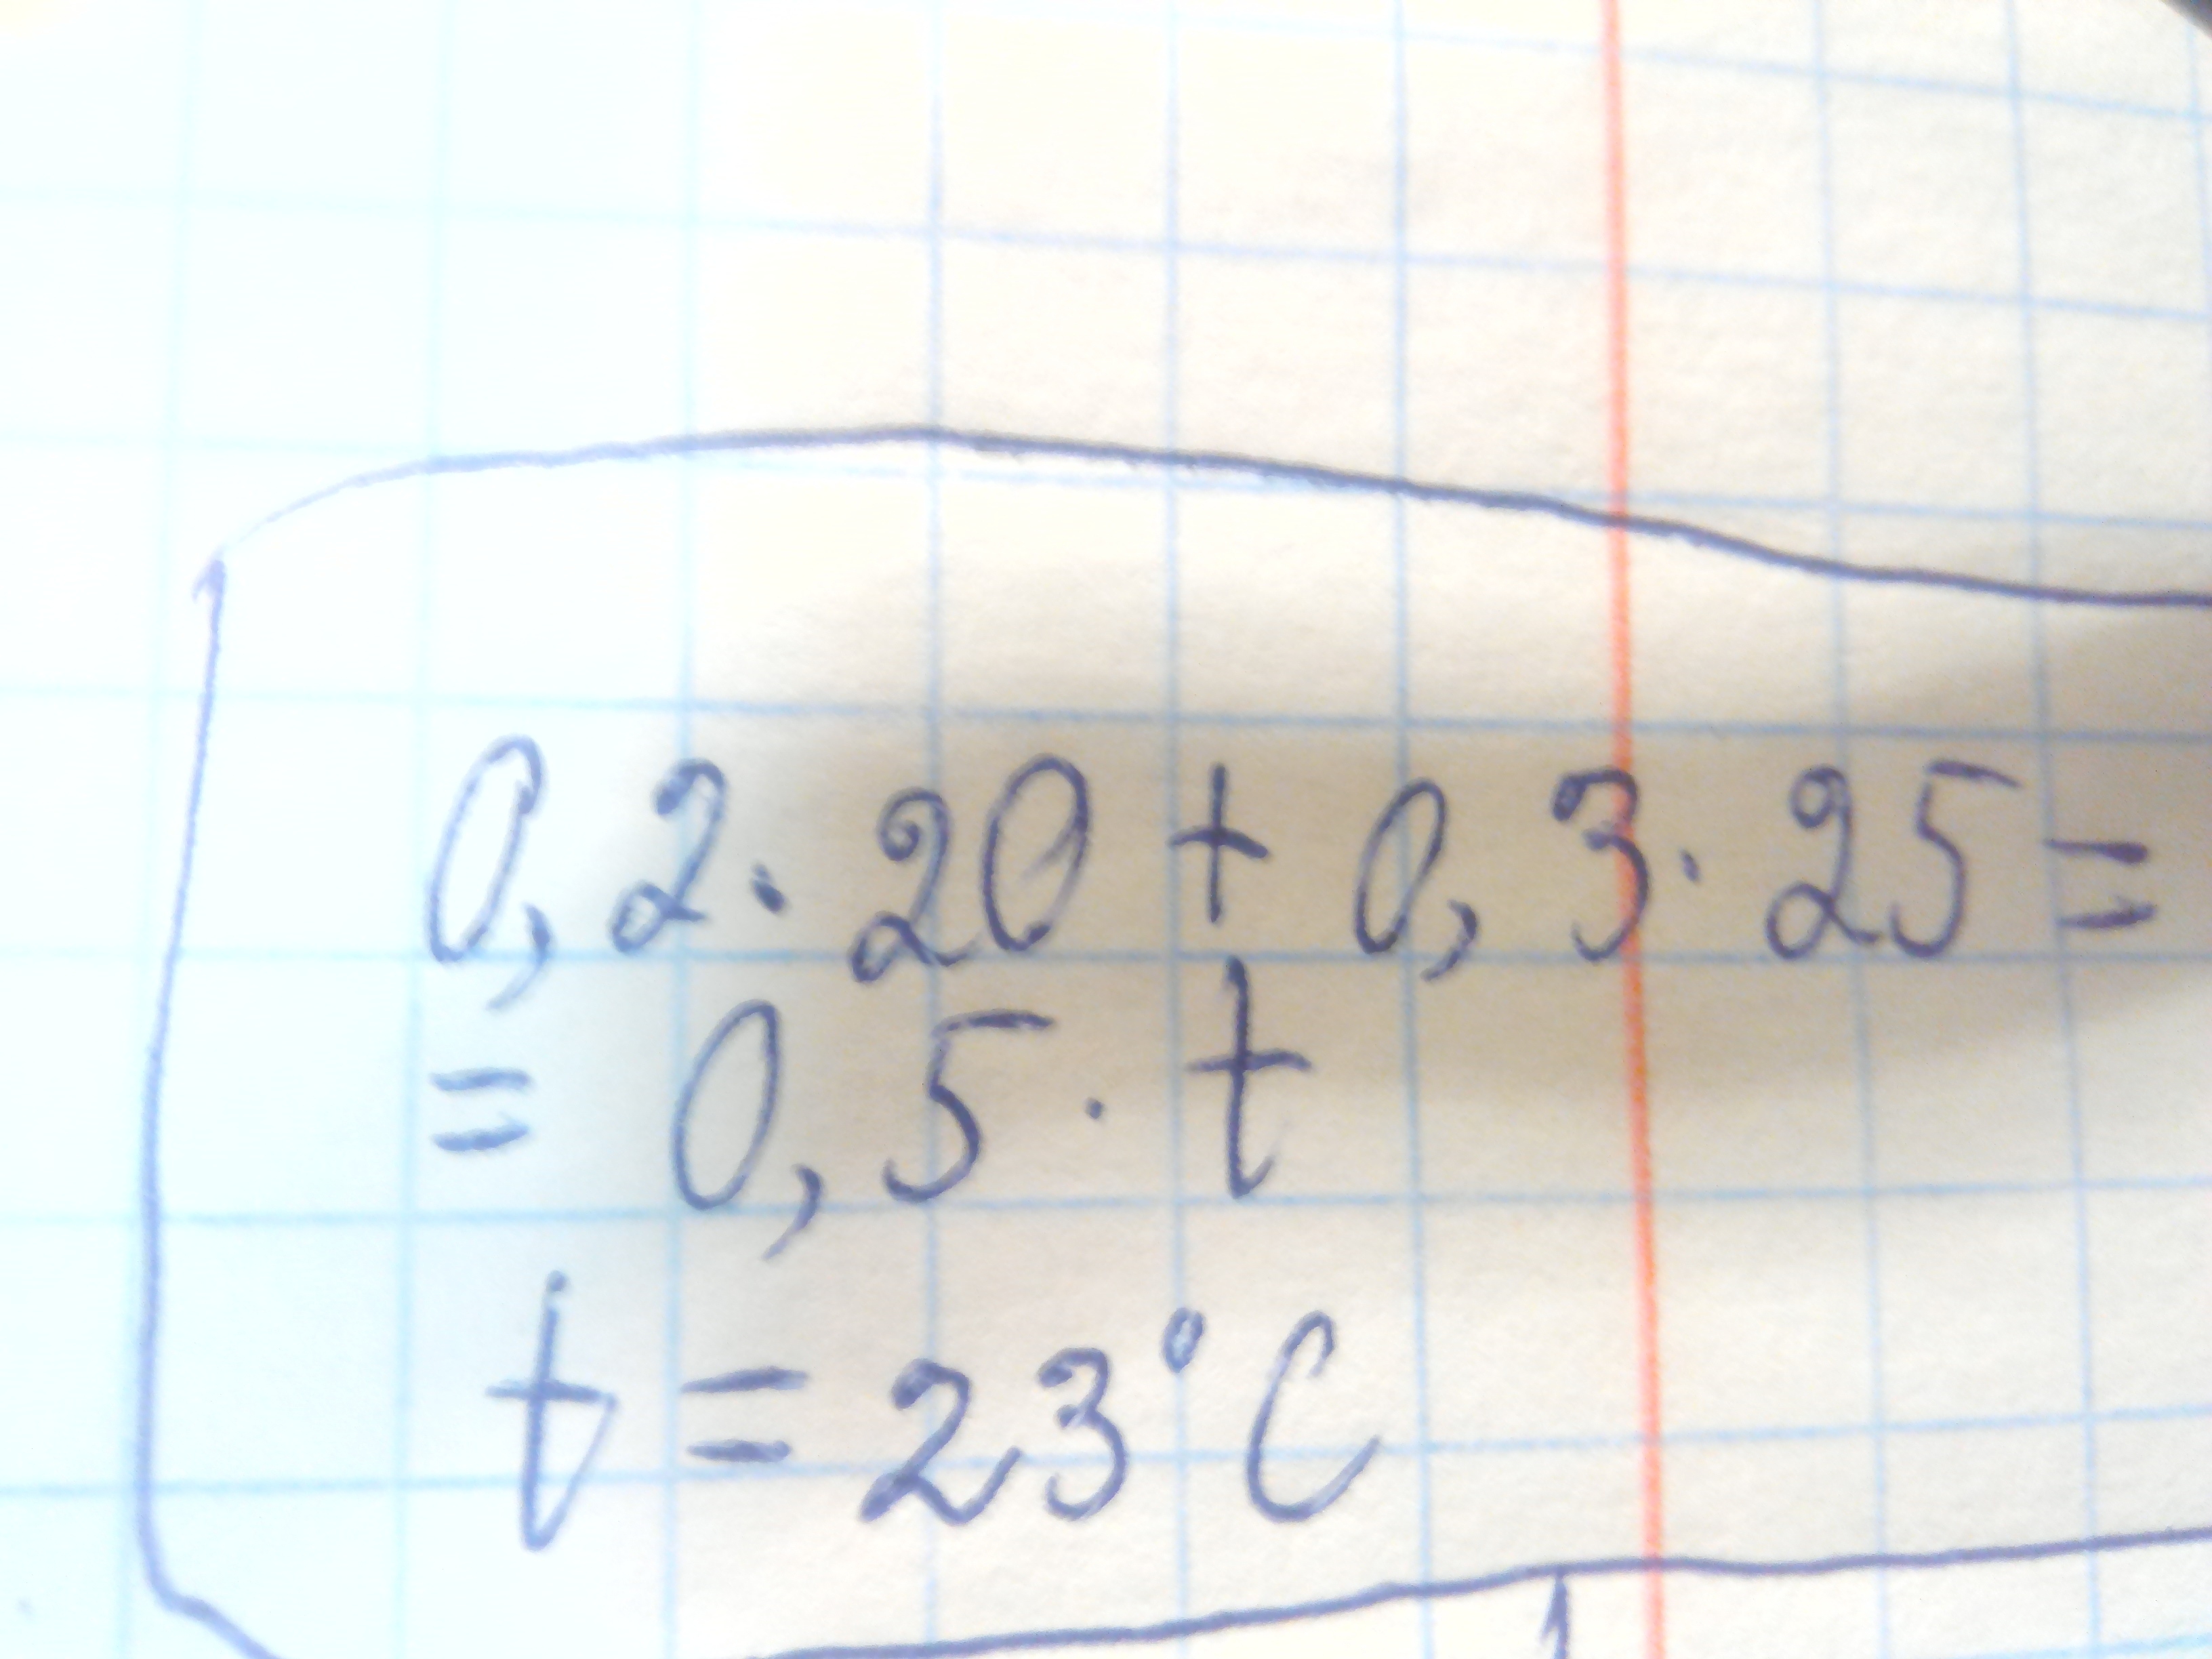 0,2·20 + 0,3·25=
= 0,5·t
t = 23°C